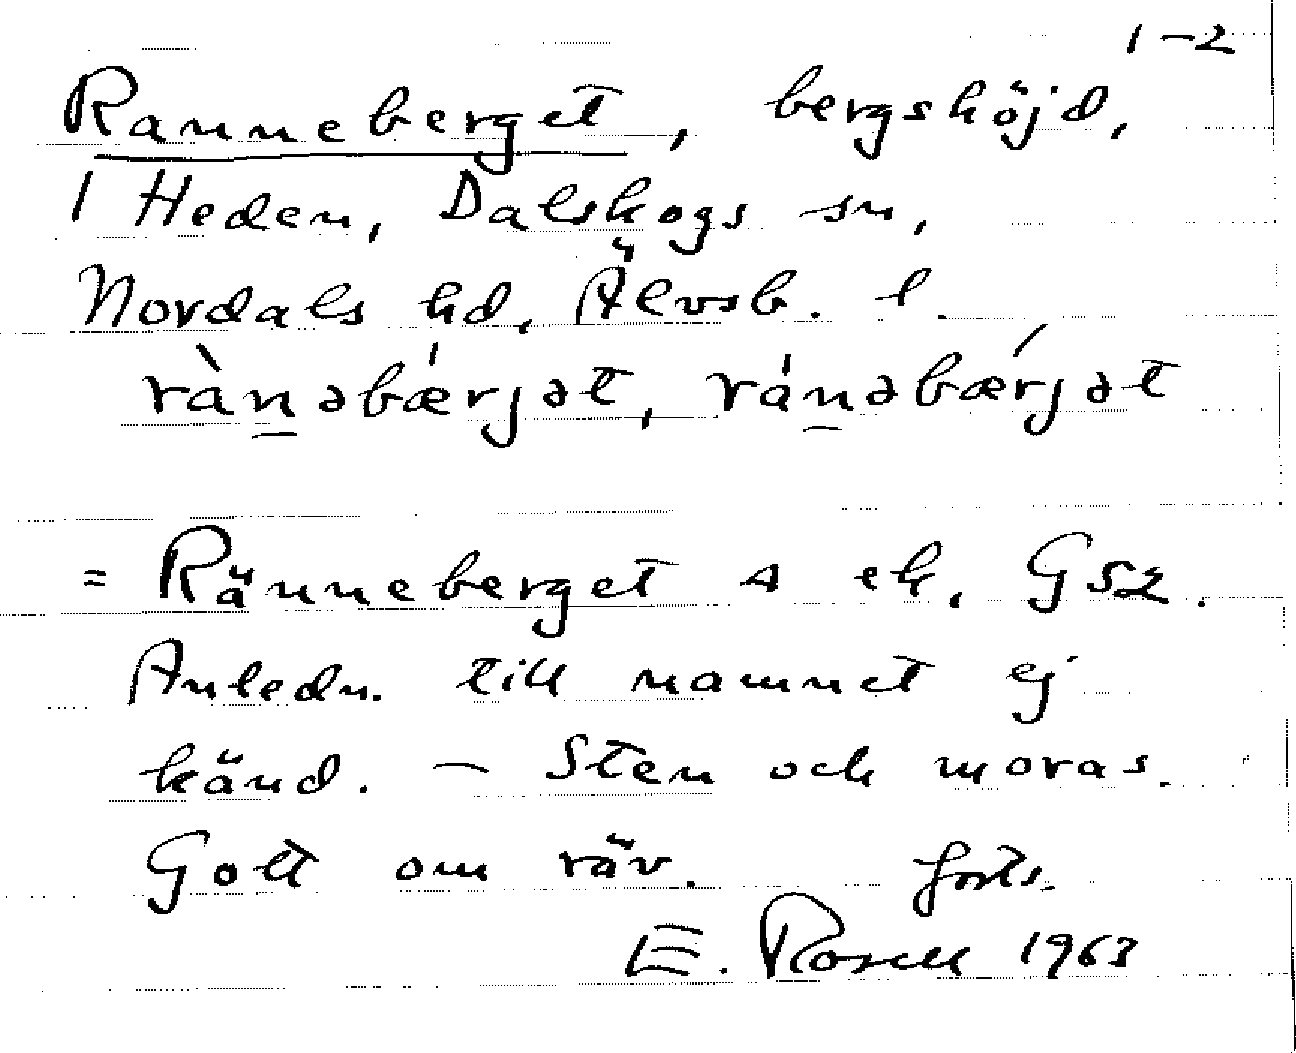 1-2
Ranneberget, bergshöjd,
1 Heden, Dalskogs sn,
Nordals hd, Älvsb. l.
rànəbǽrjət, ránəbǽrjət
= Ränneberget 4 ek. G52.
Anledn. till namnet ej
känd. - Sten och moras.
Gott om räv. forts.
E. Rosell 1963